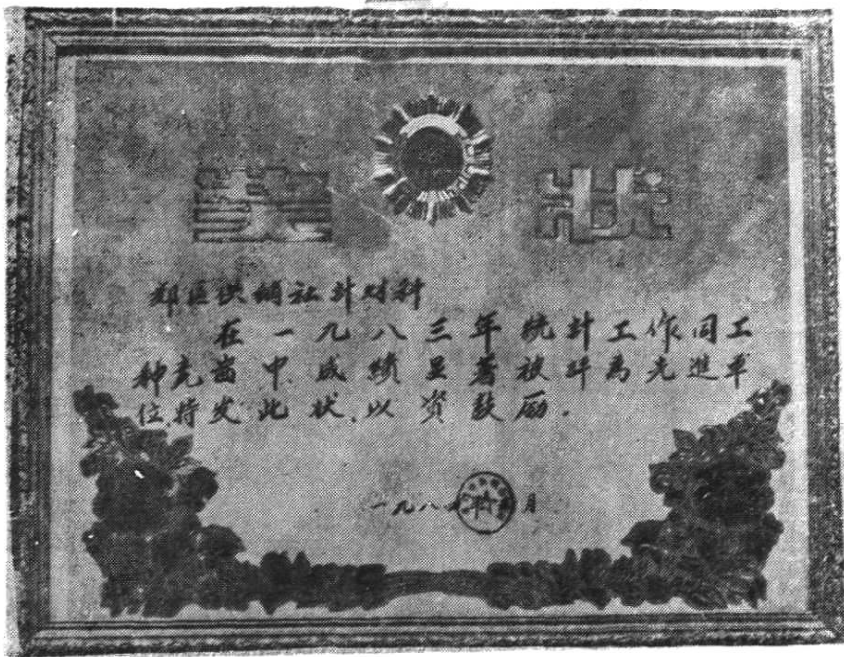 奖状
郊区供销社计财科
在一九八三年统计工作同工
种竞富中成绩显著被评为先進单
位,特发此状,以资鼓励.
一九八 月